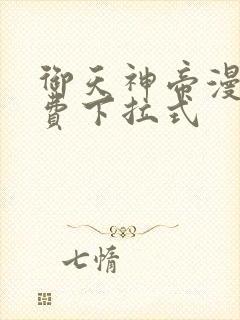 御天神帝漫
費下拉式
七情